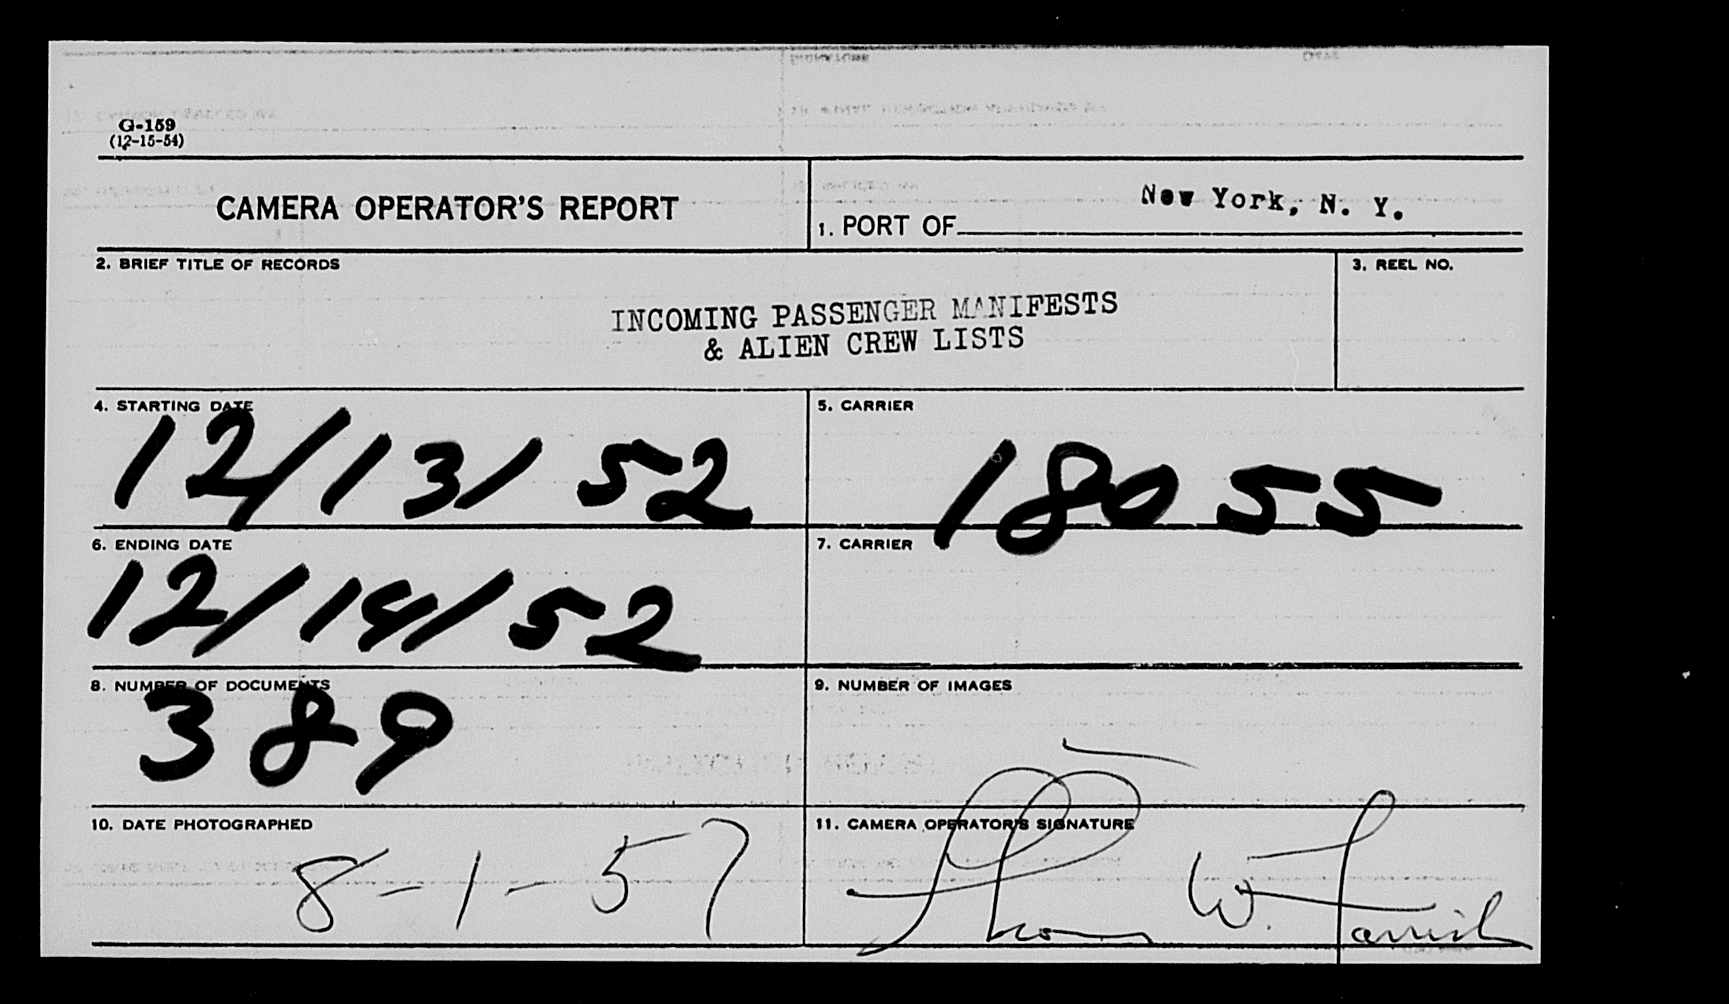 G-159
(12-15-54)
CAMERA OPERATOR'S REPORT
1. PORT OF New York, N. Y.
2. BRIEF TITLE OF RECORDS
3. REEL NO.
INCOMING PASSENGER MANIFESTS
& ALIEN CREW LISTS
4. STARTING DATE
12/13/52
5. CARRIER
18055
6. ENDING DATE
12/14/52
7. CARRIER
8. NUMBER OF DOCUMENTS
389
9. NUMBER OF IMAGES
10. DATE PHOTOGRAPHED
8-1-57
11. CAMERA OPERATOR'S SIGNATURE
Thomas W.